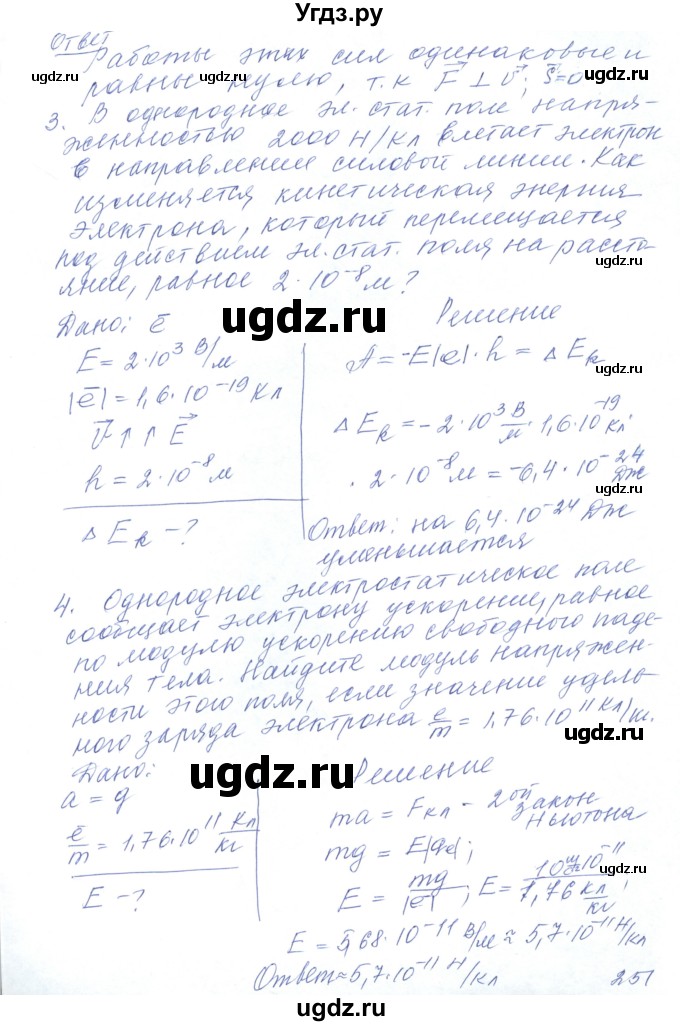 Угдз.ру
Ответ
Работы этих сил одинаковые и
равны нулю, т.к F⃗ ⊥ v⃗; S⃗=0
3. В однородное эл. стат. поле напря-
женностью 2000 Н/Кл влетает электрон
в направлении силовой линии. Как
изменяется кинетическая энергия
электрона, который перемещается
под действием эл. стат. поля на рассто-
яние, равное 2·10⁻⁸ м?
ugdz.ru
Дано: ē
E = 2·10³ В/м
|ē| = 1,6·10⁻¹⁹ Кл
v⃗ ↑↑ E⃗
h = 2·10⁻⁸ м
Δ Eₖ - ?
Решение
A = -E|e|·h = Δ Eₖ
ugdz.ru
Δ Eₖ = -2·10³ В/м · 1,6·10⁻¹⁹ Кл·
· 2·10⁻⁸ м = -6,4·10⁻²⁴ Дж
Ответ: на 6,4·10⁻²⁴ Дж
уменьшается
ugdz.ru
4. Однородное электростатическое поле
сообщает электрону ускорение, равное
по модулю ускорению свободного паде-
ния тела. Найдите модуль напряжен-
ности этого поля, если значение удель-
ного заряда электрона e/m = 1,76·10¹¹ Кл/кг.
ugdz.ru
Дано:
a = g
ē/m = 1,76·10¹¹ Кл/кг
E - ?
Решение
ma = Fкл - 2ой закон
Ньютона
mg = E|qe|;
E = mg/|e|; E = 10 · 10⁻¹¹/1,76 Кл/кг;
ugdz.ru
E = 5,68·10⁻¹¹ В/м ≈ 5,7·10⁻¹¹ Н/Кл
Ответ ≈ 5,7·10⁻¹¹ Н/Кл
251
ugdz.ru